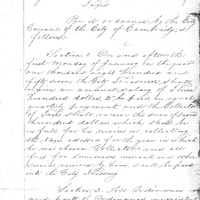 Be it ordained by the City
Council of the City of Cambridge, as
follows:
Section 1. On and after the
first Monday of January in the year
one thousand eight hundred and
fifty the City Treasurer shall
receive an annual salary of three
hundred dollars, to be paid in equal
quarterly payments and the Collector
of Taxes shall receive the sum of
hundred dollars which shall be
in full for his services in collecting
the taxes assessed for the year in which
he was chosen Collector and all
fees for summons warrants and other
shall be paid
into the City Treasury.
Section 2. All Ordinances
and parts of Ordinances inconsistent